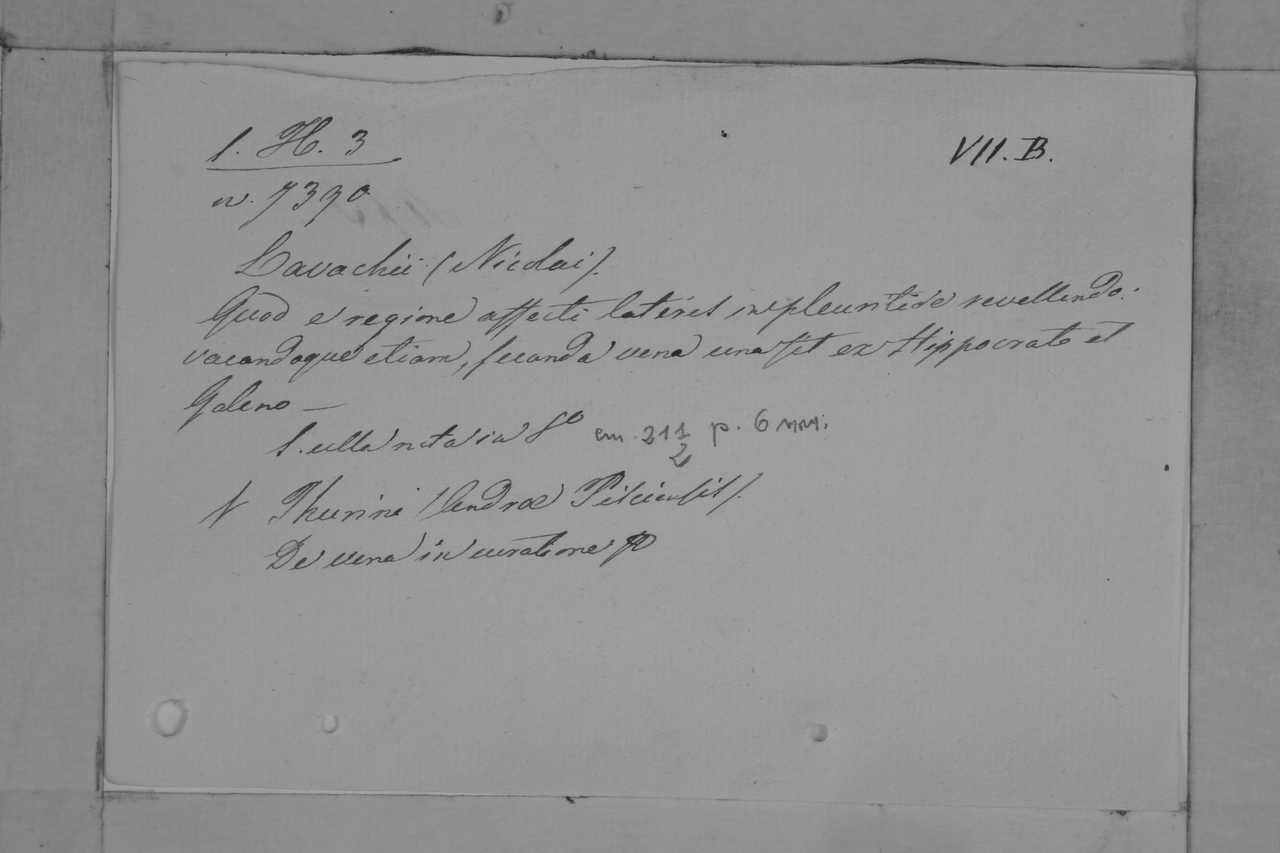 1. H. 3
VII. B.
n. 7390
Lavachii (Nicolai).
Quod e regione affecti lateris in pleuritide revellendo:
vacandoque etiam, secanda vena una sit ex Hippocrate et
Galeno —
S. ulla nota in 8º cm. 21 1/2 p. 6 nn.
Thurini (Andreæ Pisciensis).
De vena in curatione